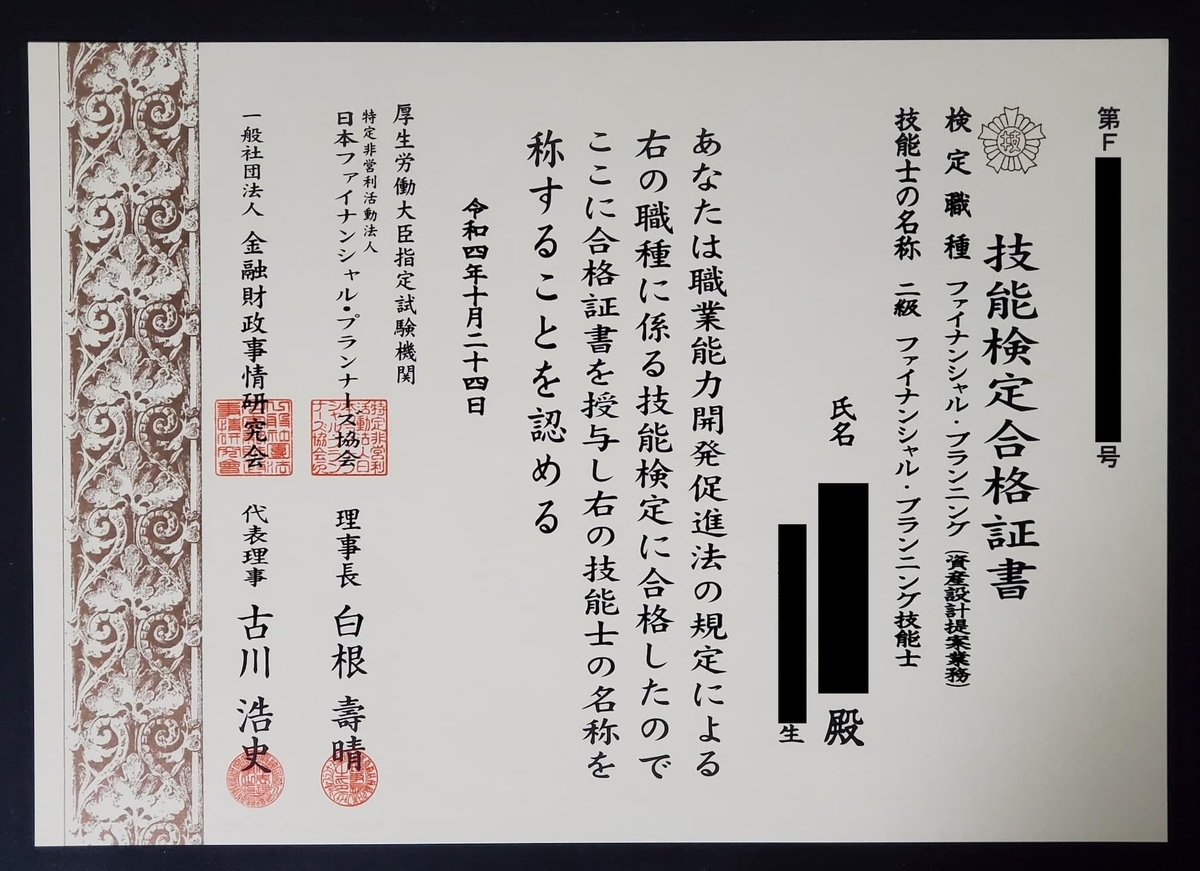 第F
号
技能検定合格証書
技
検定職種 ファイナンシャル・プランニング（資産設計提案業務）
技能士の名称 二級 ファイナンシャル・プランニング技能士
氏名
殿
生
あなたは職業能力開発促進法の規定による
右の職種に係る技能検定に合格したので
ここに合格証書を授与し右の技能士の名称を
称することを認める
令和四年十月二十四日
厚生労働大臣指定試験機関
特定非営利活動法人
日本ファイナンシャル・プランナーズ協会 理事長 白根 壽晴
一般社団法人 金融財政事情研究会 代表理事 古川 浩史